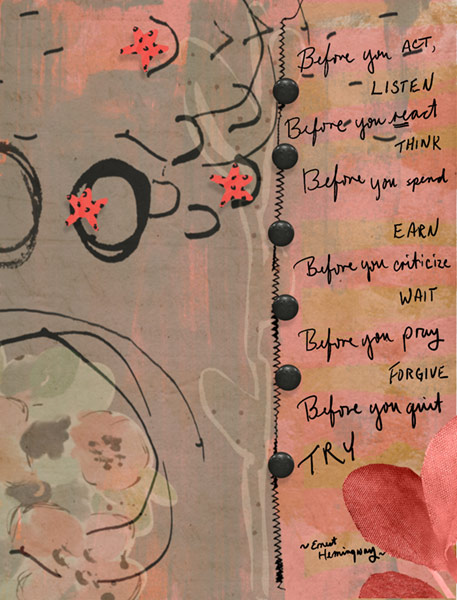 Before you ACT,
LISTEN
Before you react
THINK
Before you spend
EARN
Before you criticize
WAIT
Before you pray
FORGIVE
Before you quit
TRY
~Ernest
Hemingway~